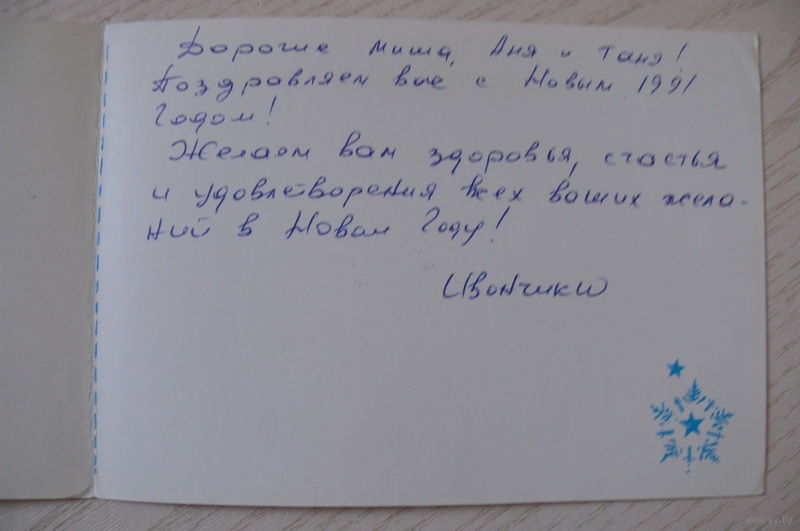 Дорогие Миша, Аня и Таня!
Поздравляем вас с Новым 1991
Годом!
Желаем вам здоровья, счастья
и удовлетворения всех ваших жела-
ний в Новом Году!
Ивончики